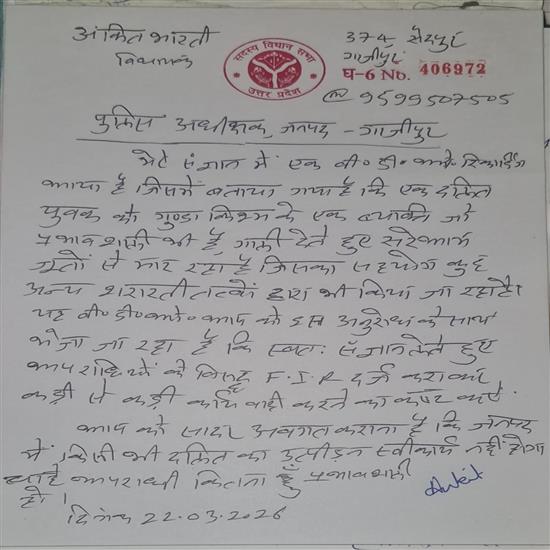 अंकित भारती
विधायक
374, सैदपुर
गाजीपुर
सदस्य विधान सभा
उत्तर प्रदेश
घ-6 No. 406972
9599507505
पुलिस अधीक्षक, जनपद - गाजीपुर
मेरे संज्ञान में एक वी० डी० ओ० रिकार्डिंग
आया है जिसमें बताया गया है कि एक दलित
युवक को गुण्डा किस्म के एक व्यक्ति जो
प्रभावशाली भी है, गाली देते हुए सरेआम
जूतों से मार रहा है जिसका सहयोग कुछ
अन्य शरारती तत्वों द्वारा भी किया जा रहा है।
यह वी० डी० ओ० आप को इस अनुरोध के साथ
भेजा जा रहा है कि स्वतः संज्ञान लेते हुए
अपराधियों के विरुद्ध F.I.R दर्ज कराकर
कड़ी से कड़ी कार्यवाही करने का कष्ट करें
आप को सादर अवगत कराना है कि जनपद
में किसी भी दलित का उत्पीड़न स्वीकार्य नहीं होगा
चाहे अपराधी कितना हूँ प्रभावशाली
हो।
Ankit
दिनांक 22.03.2026